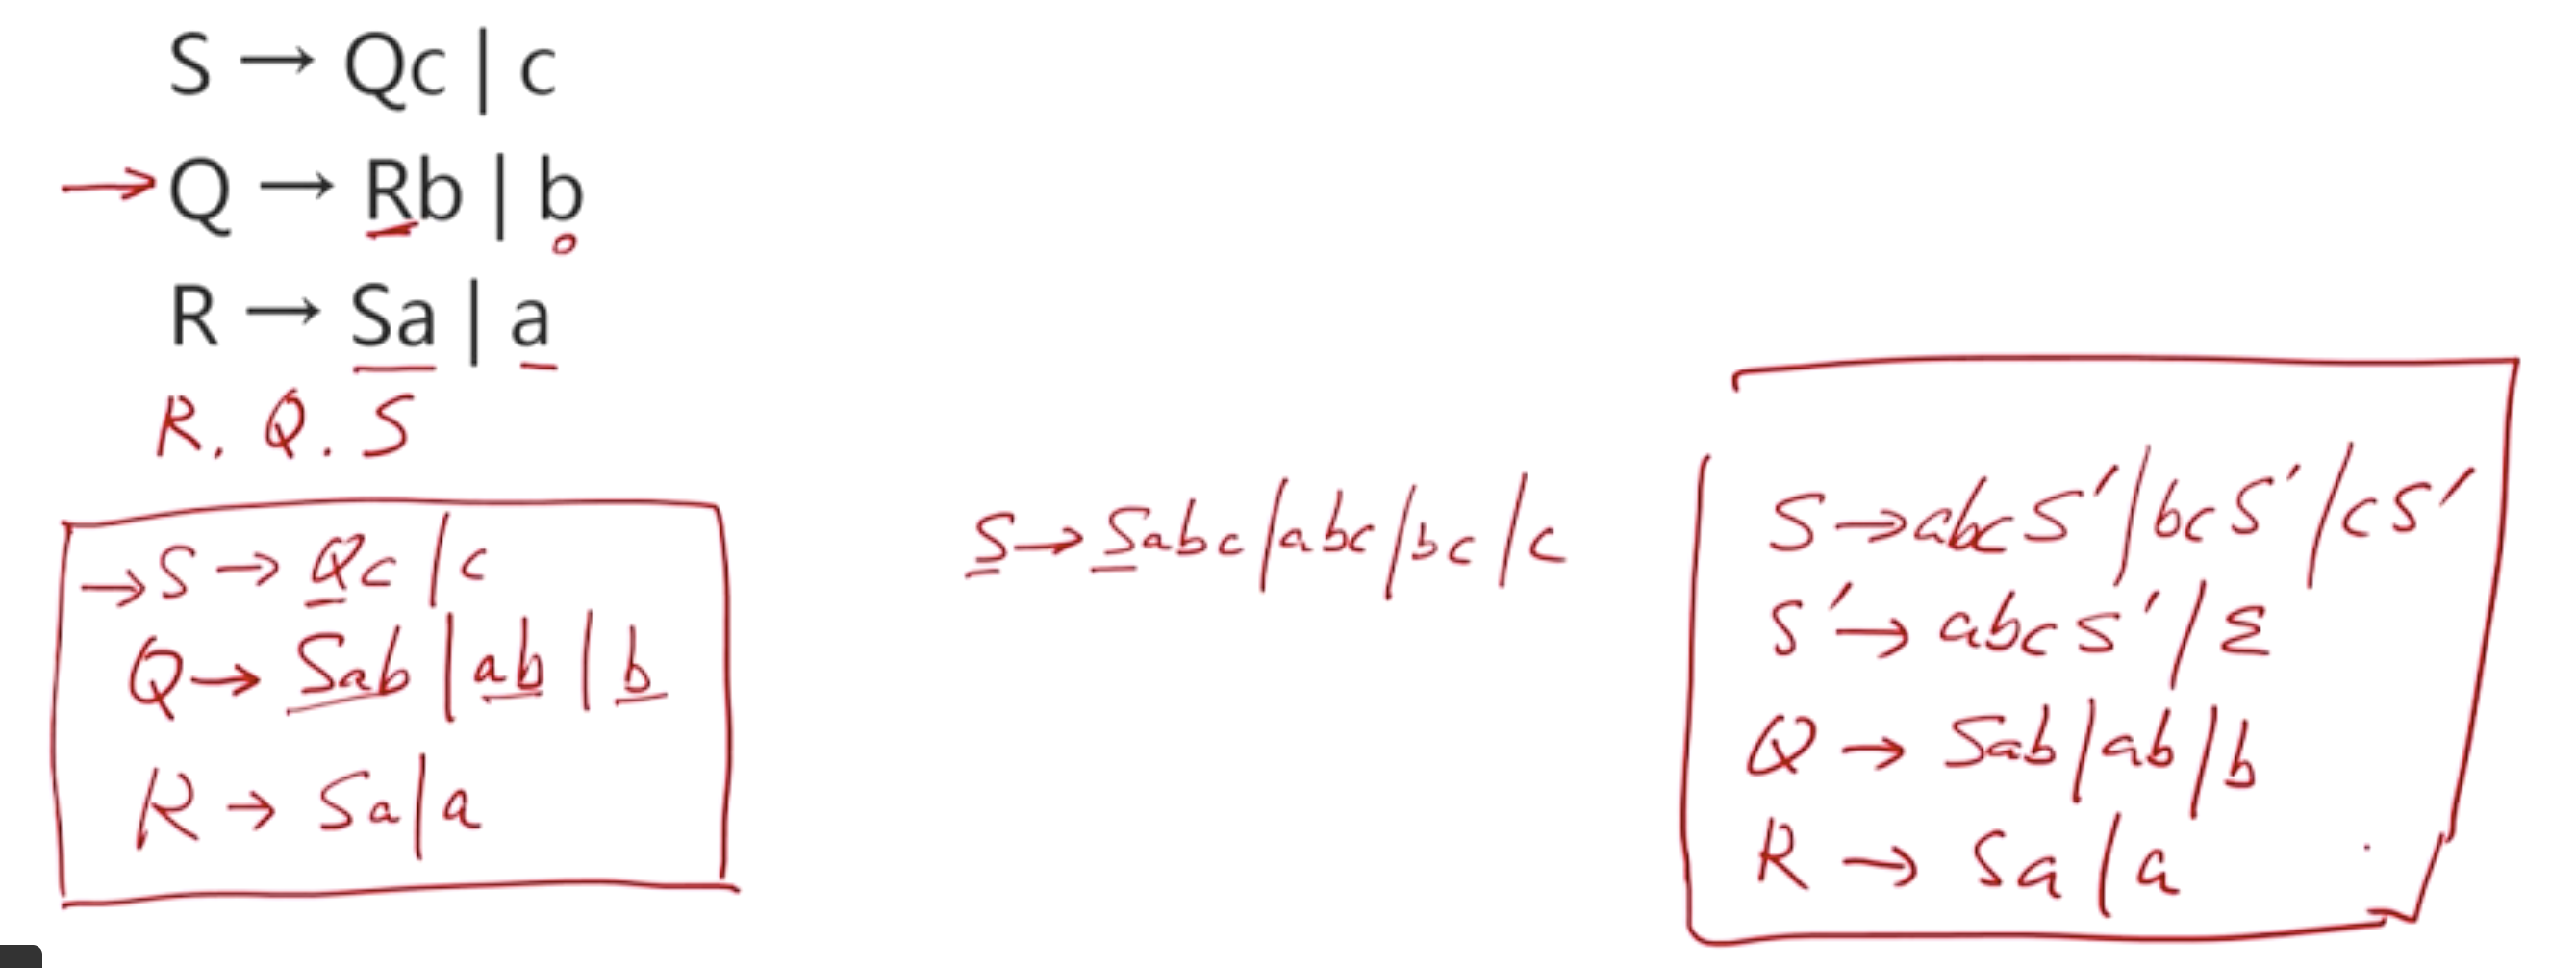 S → Qc | c
→ Q → Rb | b
R → Sa | a
R. Q. S
→ S → Qc | c
Q → Sab | ab | b
R → Sa | a
S → Sabc | abc | bc | c
S → abcS' | bcS' | cS'
S' → abcS' | ε
Q → Sab | ab | b
R → Sa | a